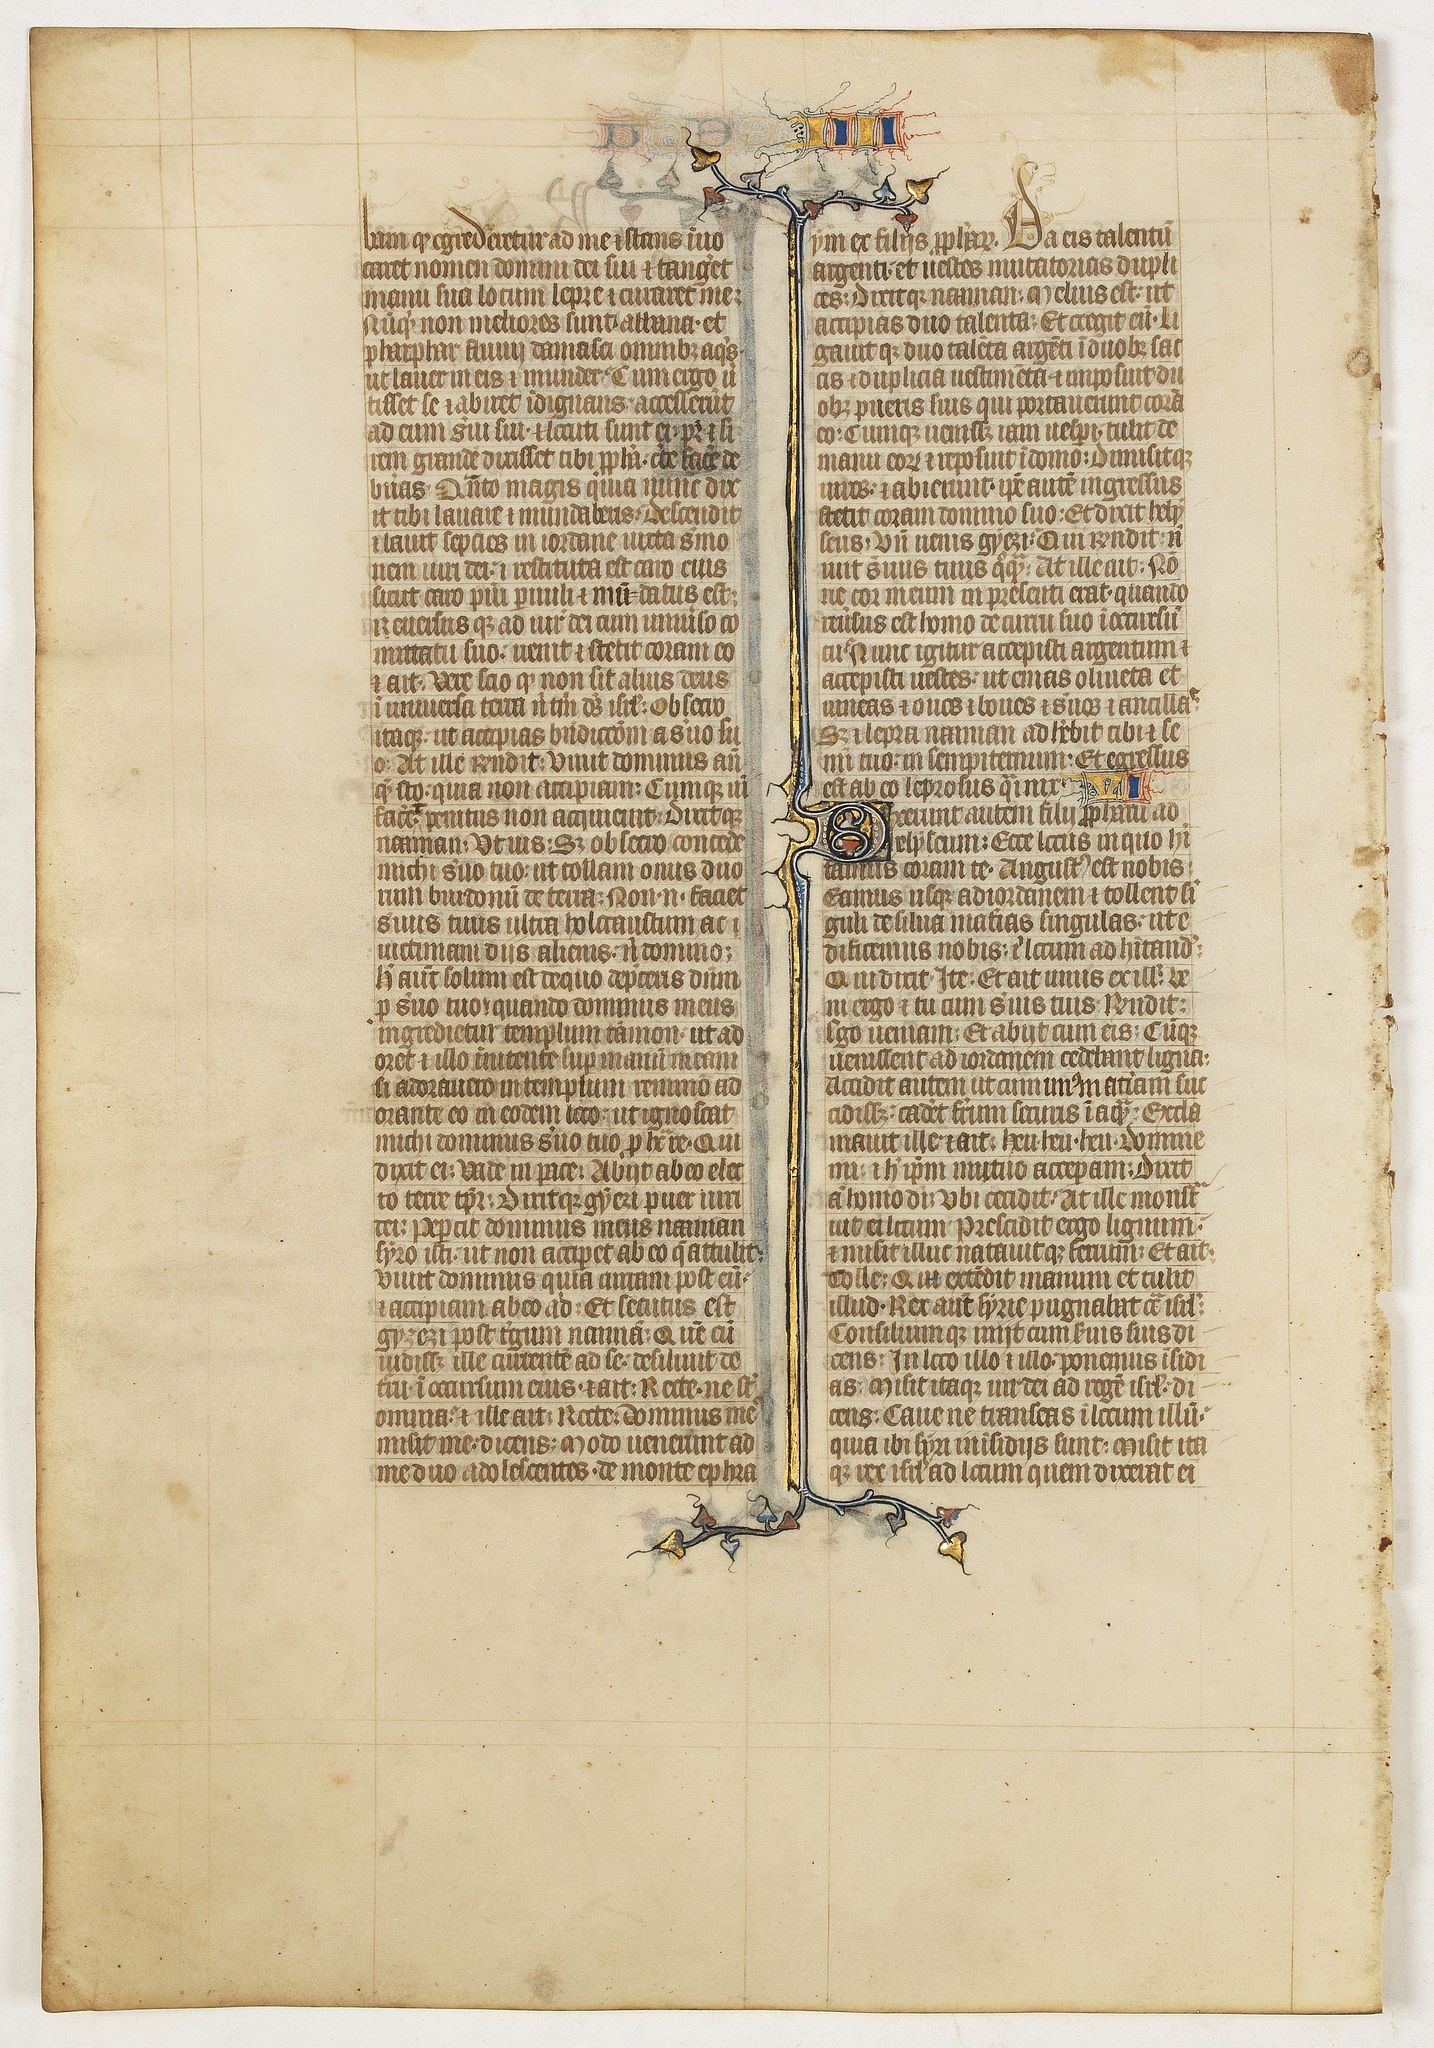 IIII
bam qp egrederetur ad me ⁊ stans īuo
caret nomen domini dei sui ⁊ tanget
manu sua locum lepre ⁊ curaret me:
Nūq̄ non meliores sunt abbana· et
pharphar fluuij damasci omnibȝ aqͥs·
ut lauer in eis ⁊ munder· Cum ergo ū
tisset se ⁊ abiret īdignans· accesserūt
ad eum sͥui sui· ⁊ locuti sunt ei· pr̄ ⁊ si
rem grandē dixisset tibi ꝓpha· cͤte facͤe de
bu̾as· Qn̄to magis qͥuia nunc dix
it tibi lauare ⁊ mundaberis· Descendit
⁊ lauit septies in iordane iuxta sͤmo
nem uiri dei· ⁊ restituta est caro eius
sicut caro pͥui puuli ⁊ mū=datus est:
Reuersus qꝫ ad uiꝝ dei cum uniuͤso co
mitatu suo· uenit ⁊ stetit coram eo
⁊ ait· Vere scio qp non sit alius deus
ī uniuersa terra n̄ tm̄ ds̄ isrl̄· Obsecro
itaqꝫ· ut accipias bn̄dictōm a sͤuo tu
o· At ille rn̄dit· Viuit dominus añ
qͤ sto· quia non accipiam: Cumqꝫ ui
facͤet penitus non acquieuit: Dixitqꝫ
naaman: Vt uis: Sꝫ obsecro concede
michi sͤuo tuo· ut tollam onus duo
rum burdonū de terra: Non·n· faciet
sͤuus tuus ultra holocaustum ac ⁊
uictimam diis alienis· n̄ domino:
h̄ aut̄ solum est de quo depͤceris dn̄m
ꝑ sͤuo tuo· quando dominus meus
ingredietur templum rāmon· ut ad
oret ⁊ illo īnitente suꝑ manū meam
si adorauero in templum remmō ad
orante eo in eodem loco· ut ignoscat
michi dominus sͤuo tuo ꝑ hͣc re· Qui
dixit ei: Vade in pace: Abijt ab eo elec
to terre tp̄r: Dixitqꝫ gyezi puer uiri
dei: Pepͤcit dominus meus naaman
syro isti· ut non acciꝑet ab eo q̄ attulit:
Viuit dominus quia curram post eū·
⁊ accipiam ab eo ad: Et secutus est
gyezi post tͤgum naamā: Quē cū
uidissꝫ ille currentē ad se· desiliuit de
cru· ī occursum eius· ⁊ ait: Recte· ne st̄
omnia· ⁊ ille ait: Recte: Dominus meͥ
misit me· dicens: Modo uenerunt ad
me duo adolescentes· de monte ephra
ẏm ex filijs ꝓphaꝝ· Da eis talentū
argenti· et uestes mutatorias dupli
ces: Dixitqꝫ naaman· Melius est· ut
accipias duo talenta: Et coegit eū· Li
gauit qꝫ duo talēta argēti ī duobꝫ sac
cis ⁊ duplicia uestimēta ⁊ imposuit du
obꝫ pueris suis qui portauerunt corā
eo: Cumqꝫ uenissꝫ iam uesꝑi· tulit de
manu eoꝝ ⁊ reposuit ī domo: Dimisitqꝫ
uiros· ⁊ abierunt· ip̄e autē ingressus
stetit coram domino suo: Et dixit hely
seus: Vn̄ uenis gyezi· Qui rn̄dit· n̄
iuit sͤuus tuus qͦqͣ: At ille ait: Nō
ne cor meum in presenti erat· quando
reūsus est homo de curru suo ī occursū
tu· Nunc igitur accepisti argentum ⁊
accepisti uestes· ut emas oliueta et
uineas ⁊ oues ⁊ boues ⁊ sͤuos ⁊ ancillaˢ
Sꝫ ⁊ lepra naaman adh̄ebit tibi ⁊ se
mī tuo· in sempiternum: Et egressus
est ab eo leprosus qͣi nix· VI
Dixerunt autem filij ꝓphaꝝ ad
helyseum: Ecce locus in quo hī
tamus coram te· Angustꝰ est nobis·
Eamus usqꝫ ad iordanem ⁊ tollent sī
guli de silua mat̄ias singulas· ut e
dificemus nobis· ī locum ad hītand̄:
Qui dixit· Ite· Et ait unus ex ill̄: ve
ni ergo ⁊ tu cum sͤuis tuis· Rn̄dit:
Ego ueniam: Et abijt cum eis: Cūqꝫ
uenissent ad iordanem cedebant ligna:
Accidit autem ut cum unꝰ matͥam suc
cidissꝫ· cadͤet fͤrum securis ī aqͣ: Excla
mauit ille ⁊ ait: heu·heu·heu· domine
mi· ⁊ hͦ ip̄m mutuo accepͤam: Dixit
ā homo dī: Vbi cecidit· At ille monstͣ
uit ei locum· Prescidit ergo lignum·
⁊ misit illuc natauitqꝫ ferrum: Et ait·
Tolle· Qui extēdit manum et tulit
illud· Rex aut̄ syrie pugnabat cͣ isrl̄:
Consiliumqꝫ inijt cum sͤuis suis di
cens: In loco illo ⁊ illo· ponemus īsidi
as· Misit itaqꝫ uir dei ad regē isrl̄· di
cens: Caue ne transeas ī locum illū·
quia ibi syri in īsidijs sunt: Misit ita
qꝫ rex isrl̄ ad locum quem dixerat ei